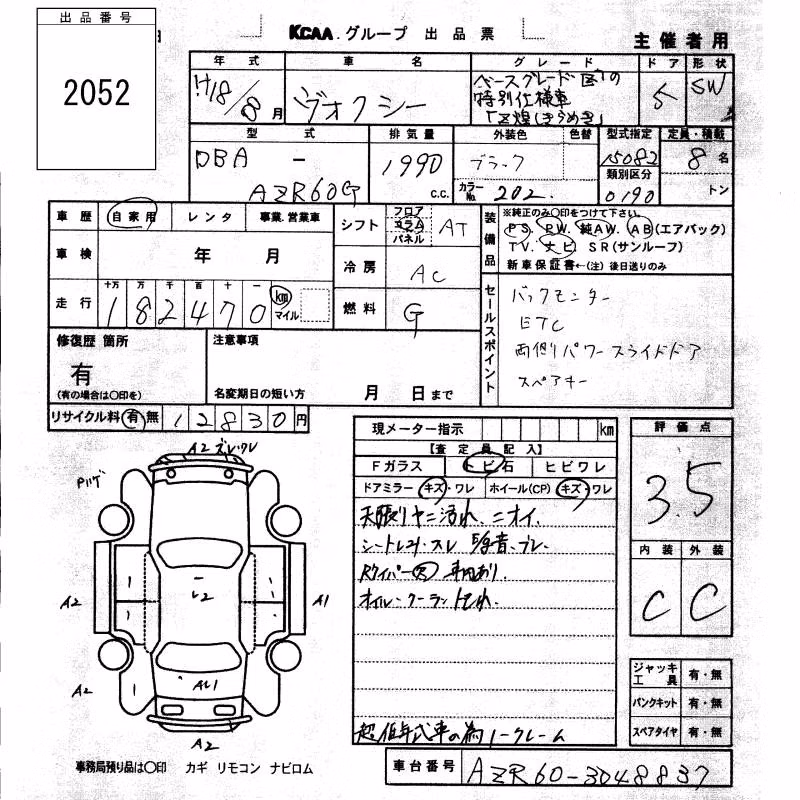 出品番号
2052
KCAA グループ 出品票
主催者用
年式 車名 グレード ドア 形状
H18/8月 ヴォクシー 特別仕様車 「Z煌(きらめき) 5 SW
型式 排気量 外装色 色替 型式指定 定員・積載
DBA - 1990 ブラック 15082 8名
類別区分
AZR60G c.c. カラーNo. 202. 0190 トン
車歴 自家用 レンタ 事業.営業車
シフト フロア コラム パネル AT
装備品 ※純正のみ〇印をつけて下さい。
PS. PW. 純AW. AB(エアバック)
TV. ナビ. SR(サンルーフ)
新車保証書←(注)後日送りのみ
車検 年 月
冷房 AC
走行 十万 万 千 百 十 一
182470 km マイル
燃料 G
セールスポイント
バックモニター
ETC
両側パワースライドドア
スペアキー
修復歴 箇所
有
(有の場合は〇印を)
注意事項
名変期日の短い方 月 日まで
リサイクル料 有 無 12830円
現メーター指示 km
【査定員記入】
Fガラス トビ石 ヒビワレ
ドアミラー キズ・ワレ ホイール(CP) キズ・ワレ
天張りヤニ汚れ、ニオイ.
シートレス・スレ
Rワイパー欠
オイル・クーラントモレ.
超低年式車の為ノークレーム
評価点
3.5
内装 外装
C C
ジャッキ工具 有・無
パンクキット 有・無
スペアタイヤ 有・無
A2 ズレ・ワレ
A2
A1
L2
A2
A2
AU1
A2
事務局預り品は〇印 カギ リモコン ナビロム
車台番号 AZR60-3048837